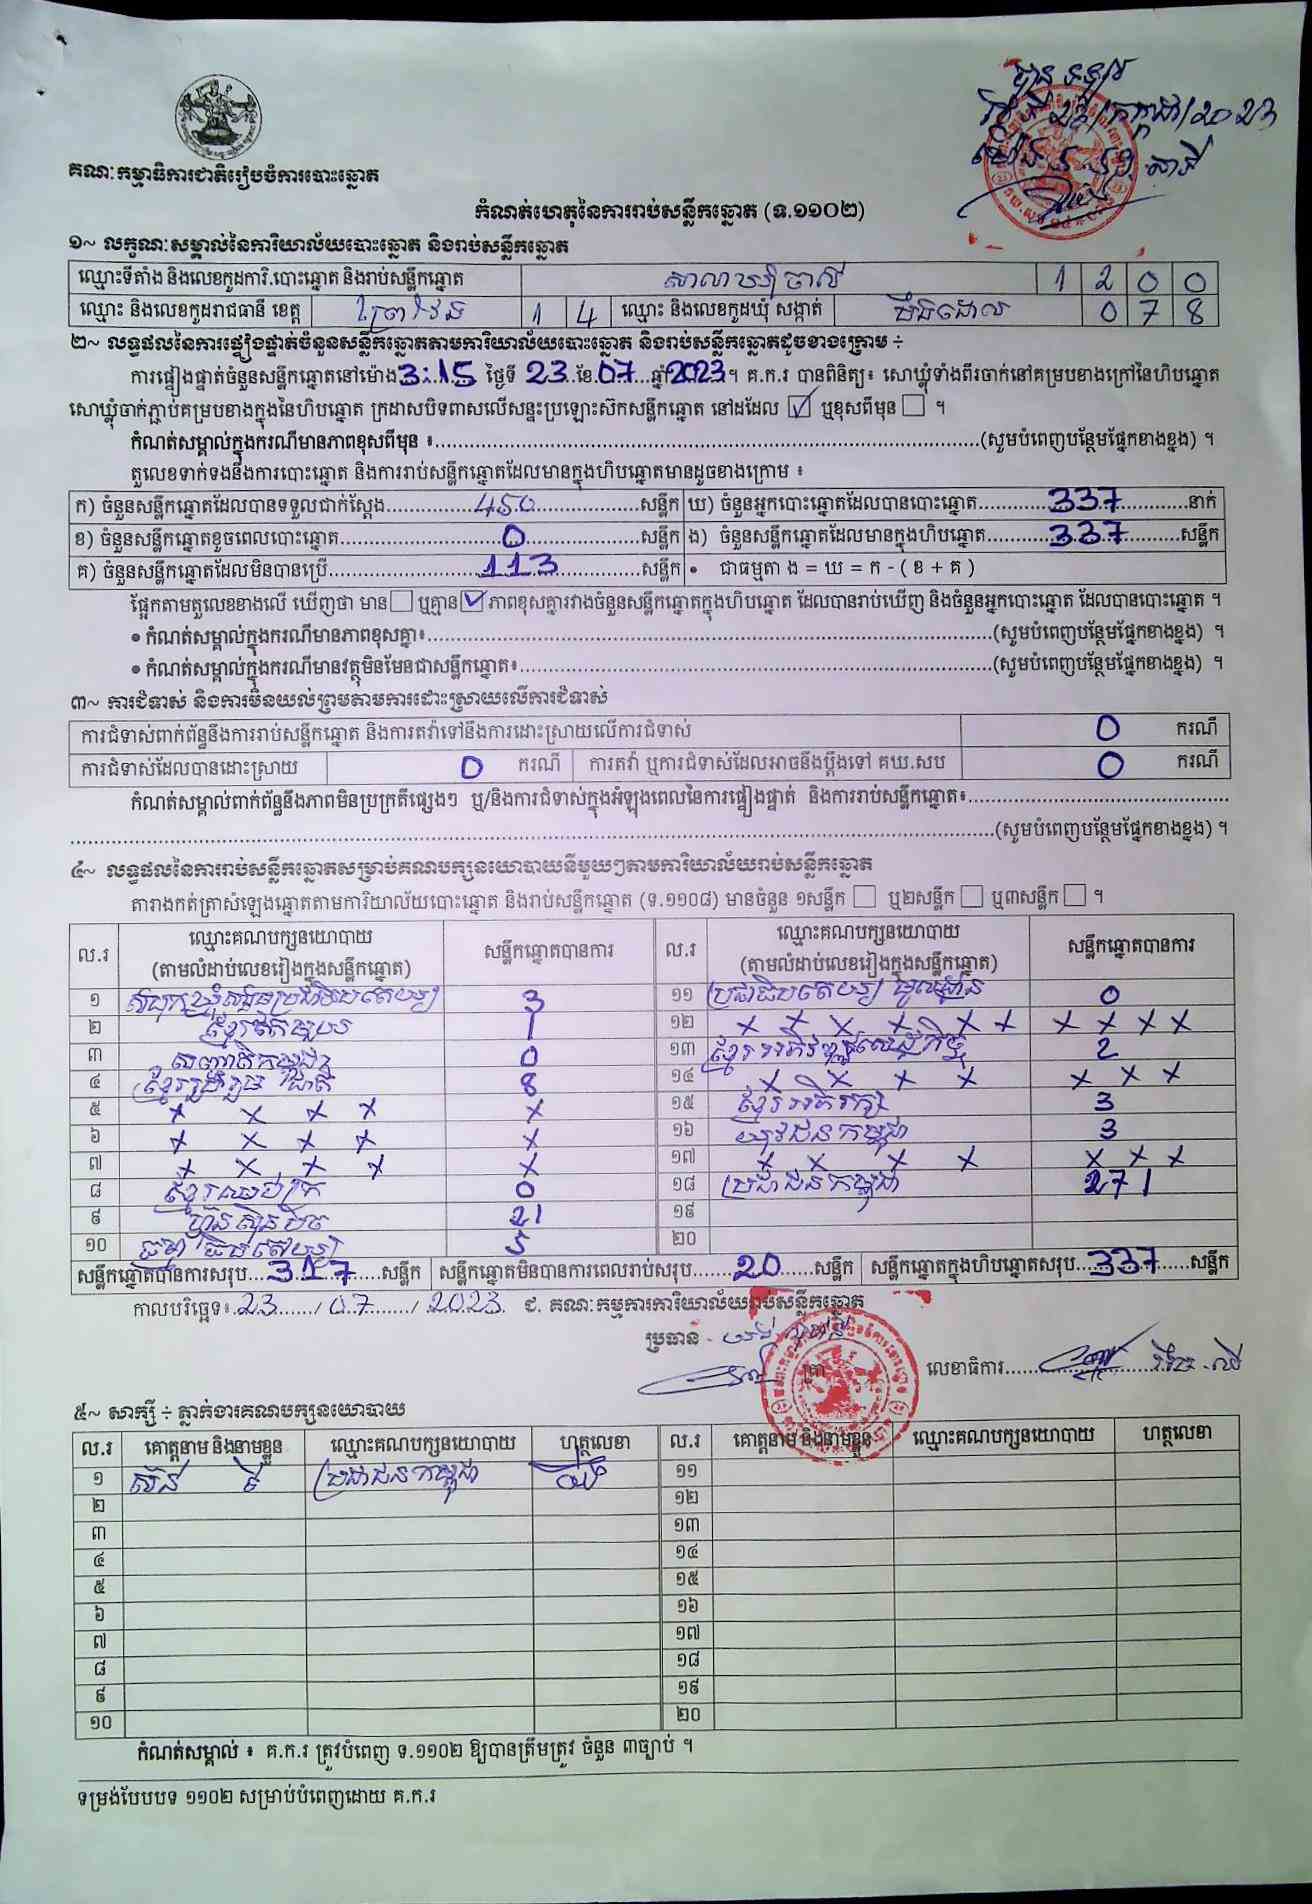 បានទទួល
ថ្ងៃទី 23/កក្កដា/2023
គណៈកម្មាធិការជាតិរៀបចំការបោះឆ្នោត
កំណត់ហេតុនៃការរាប់សន្លឹកឆ្នោត (ទ.១១០២)
១~ លក្ខណៈសម្គាល់នៃការិយាល័យបោះឆ្នោត និងរាប់សន្លឹកឆ្នោត
ឈ្មោះទីតាំង និងលេខកូដការិ.បោះឆ្នោត និងរាប់សន្លឹកឆ្នោត សាលាឃុំចាស់ 1 2 0 0
ឈ្មោះ និងលេខកូដរាជធានី ខេត្ត ព្រៃវែង 1 4 ឈ្មោះ និងលេខកូដឃុំ សង្កាត់ បឹងដោល 0 7 8
២~ លទ្ធផលនៃការផ្ទៀងផ្ទាត់ចំនួនសន្លឹកឆ្នោតតាមការិយាល័យបោះឆ្នោត និងរាប់សន្លឹកឆ្នោតដូចខាងក្រោម ÷
ការផ្ទៀងផ្ទាត់ចំនួនសន្លឹកឆ្នោតនៅម៉ោង 3:15 ថ្ងៃទី 23 ខែ 07 ឆ្នាំ 2023 ។ គ.ក.រ បានពិនិត្យ៖ សោឃ្លុំទាំងពីរចាក់នៅគម្របខាងក្រៅនៃហិបឆ្នោត
សោឃ្លុំចាក់ភ្ជាប់គម្របខាងក្នុងនៃហិបឆ្នោត ក្រដាសបិទពាសលើសន្ទះប្រឡោះស៊កសន្លឹកឆ្នោត នៅដដែល ☑ ឬខុសពីមុន ☐ ។
កំណត់សម្គាល់ក្នុងករណីមានភាពខុសពីមុន ៖.....(សូមបំពេញបន្ថែមផ្នែកខាងខ្នង) ។
តួលេខទាក់ទងនឹងការបោះឆ្នោត និងការរាប់សន្លឹកឆ្នោតដែលមានក្នុងហិបឆ្នោតមានដូចខាងក្រោម ៖
ក) ចំនួនសន្លឹកឆ្នោតដែលបានទទួលជាក់ស្តែង 450 សន្លឹក ឃ) ចំនួនអ្នកបោះឆ្នោតដែលបានបោះឆ្នោត 337 នាក់
ខ) ចំនួនសន្លឹកឆ្នោតខូចពេលបោះឆ្នោត 0 សន្លឹក ង) ចំនួនសន្លឹកឆ្នោតដែលមានក្នុងហិបឆ្នោត 337 សន្លឹក
គ) ចំនួនសន្លឹកឆ្នោតដែលមិនបានប្រើ 113 សន្លឹក • ជាធម្មតា ង = ឃ = ក - ( ខ + គ )
ផ្អែកតាមតួលេខខាងលើ ឃើញថា មាន ☐ ឬគ្មាន ☑ ភាពខុសគ្នារវាងចំនួនសន្លឹកឆ្នោតក្នុងហិបឆ្នោត ដែលបានរាប់ឃើញ និងចំនួនអ្នកបោះឆ្នោត ដែលបានបោះឆ្នោត ។
• កំណត់សម្គាល់ក្នុងករណីមានភាពខុសគ្នា៖.....(សូមបំពេញបន្ថែមផ្នែកខាងខ្នង) ។
• កំណត់សម្គាល់ក្នុងករណីមានវត្ថុមិនមែនជាសន្លឹកឆ្នោត៖.....(សូមបំពេញបន្ថែមផ្នែកខាងខ្នង) ។
៣~ ការជំទាស់ និងការមិនយល់ព្រមតាមការដោះស្រាយលើការជំទាស់
ការជំទាស់ពាក់ព័ន្ធនឹងការរាប់សន្លឹកឆ្នោត និងការតវ៉ាទៅនឹងការដោះស្រាយលើការជំទាស់ 0 ករណី
ការជំទាស់ដែលបានដោះស្រាយ 0 ករណី ការតវ៉ា ឬការជំទាស់ដែលអាចនឹងប្តឹងទៅ គឃ.សប 0 ករណី
កំណត់សម្គាល់ពាក់ព័ន្ធនឹងភាពមិនប្រក្រតីផ្សេងៗ ឬ/និងការជំទាស់ក្នុងអំឡុងពេលនៃការផ្ទៀងផ្ទាត់ និងការរាប់សន្លឹកឆ្នោត៖.....
.....(សូមបំពេញបន្ថែមផ្នែកខាងខ្នង) ។
៤~ លទ្ធផលនៃការរាប់សន្លឹកឆ្នោតសម្រាប់គណបក្សនយោបាយនីមួយៗតាមការិយាល័យរាប់សន្លឹកឆ្នោត
តារាងកត់ត្រាសំឡេងឆ្នោតតាមការិយាល័យបោះឆ្នោត និងរាប់សន្លឹកឆ្នោត (ទ.១១០៨) មានចំនួន ១សន្លឹក ☐ ឬ២សន្លឹក ☐ ឬ៣សន្លឹក ☐ ។
ល.រ ឈ្មោះគណបក្សនយោបាយ (តាមលំដាប់លេខរៀងក្នុងសន្លឹកឆ្នោត) សន្លឹកឆ្នោតបានការ ល.រ ឈ្មោះគណបក្សនយោបាយ (តាមលំដាប់លេខរៀងក្នុងសន្លឹកឆ្នោត) សន្លឹកឆ្នោតបានការ
១ សំបុកឃ្មុំសង្គមប្រជាធិបតេយ្យ 3 ១១ ប្រជាធិបតេយ្យមូលដ្ឋាន 0
២ ខ្មែរតែមួយ 1 ១២ x x x x x x x x x x
៣ 0 ១៣ ខ្មែរអភិវឌ្ឍន៍សេដ្ឋកិច្ច 2
៤ ខ្មែររួបរួមជាតិ 8 ១៤ x x x x x x x
៥ x x x x x ១៥ ខ្មែរអភិរក្ស 3
៦ x x x x x ១៦ យុវជនកម្ពុជា 3
៧ x x x x x ១៧ x x x x x x x
៨ ខ្មែរឈប់ក្រ 0 ១៨ ប្រជាជនកម្ពុជា 271
៩ ហ៊្វុនស៊ិនប៉ិច 21 ១៩
១០ ធម្មាធិបតេយ្យ 5 ២០
សន្លឹកឆ្នោតបានការសរុប 317 សន្លឹក សន្លឹកឆ្នោតមិនបានការពេលរាប់សរុប 20 សន្លឹក សន្លឹកឆ្នោតក្នុងហិបឆ្នោតសរុប 337 សន្លឹក
កាលបរិច្ឆេទ៖ 23 / 07 / 2023 ជ. គណៈកម្មការការិយាល័យរាប់សន្លឹកឆ្នោត
ប្រធាន
ត្រា លេខាធិការ
៥~ សាក្សី ÷ ភ្នាក់ងារគណបក្សនយោបាយ
ល.រ គោត្តនាម និងនាមខ្លួន ឈ្មោះគណបក្សនយោបាយ ហត្ថលេខា ល.រ គោត្តនាម និងនាមខ្លួន ឈ្មោះគណបក្សនយោបាយ ហត្ថលេខា
១ ប្រជាជនកម្ពុជា ១១
២ ១២
៣ ១៣
៤ ១៤
៥ ១៥
៦ ១៦
៧ ១៧
៨ ១៨
៩ ១៩
១០ ២០
កំណត់សម្គាល់ ៖ គ.ក.រ ត្រូវបំពេញ ទ.១១០២ ឱ្យបានត្រឹមត្រូវ ចំនួន ៣ច្បាប់ ។
ទម្រង់បែបបទ ១១០២ សម្រាប់បំពេញដោយ គ.ក.រ